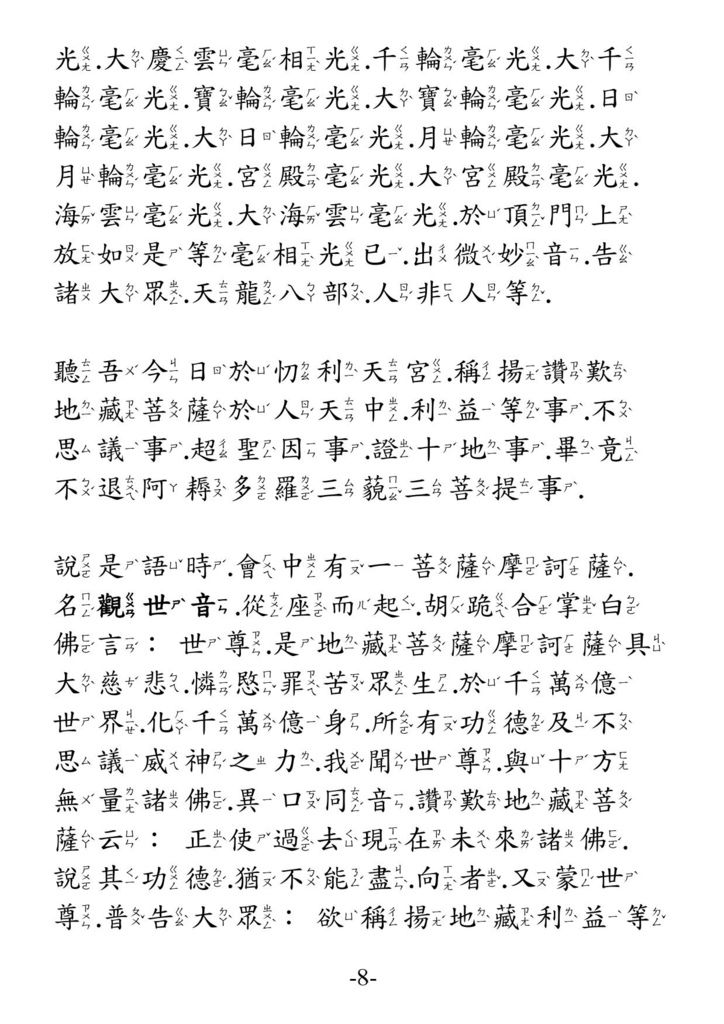 光.大慶雲毫相光.千輪毫光.大千
輪毫光.寶輪毫光.大寶輪毫光.日
輪毫光.大日輪毫光.月輪毫光.大
月輪毫光.宮殿毫光.大宮殿毫光.
海雲毫光.大海雲毫光.於頂門上
放如是等毫相光已.出微妙音.告
諸大眾.天龍八部.人非人等.
聽吾今日於忉利天宮.稱揚讚歎
地藏菩薩於人天中.利益等事.不
思議事.超聖因事.證十地事.畢竟
不退阿耨多羅三藐三菩提事.
說是語時.會中有一菩薩摩訶薩.
名觀世音.從座而起.胡跪合掌白
佛言： 世尊.是地藏菩薩摩訶薩具
大慈悲.憐愍罪苦眾生.於千萬億
世界.化千萬億身.所有功德及不
思議威神之力.我聞世尊.與十方
無量諸佛.異口同音.讚歎地藏菩
薩云： 正使過去現在未來諸佛.
說其功德.猶不能盡.向者.又蒙世
尊.普告大眾： 欲稱揚地藏利益等
-8-